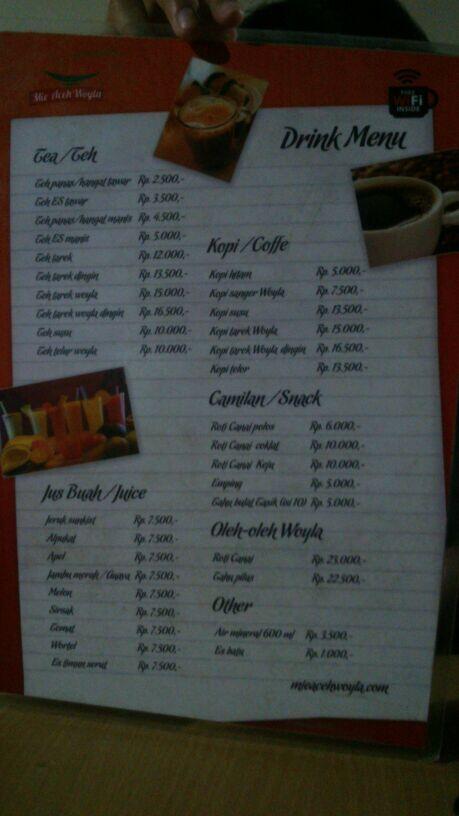 Mie Aceh Woyla
FREE
WiFi
INSIDE
Drink Menu
Tea/Teh
Teh panas/hangat tawar Rp. 2.500,-
Teh ES tawar Rp. 3.500,-
Teh panas/hangat manis Rp. 4.500,-
Teh ES manis Rp. 5.000,-
Teh tarek Rp. 12.000,-
Teh tarek dingin Rp. 13.500,-
Teh tarek woyla Rp. 15.000,-
Teh tarek woyla dingin Rp. 16.500,-
Teh susu Rp. 10.000,-
Teh telur woyla Rp. 10.000,-
Kopi/Coffe
Kopi hitam Rp. 5.000,-
Kopi sanger Woyla Rp. 7.500,-
Kopi susu Rp. 13.500,-
Kopi tarek Woyla Rp. 15.000,-
Kopi tarek Woyla dingin Rp. 16.500,-
Kopi telor Rp. 13.500,-
Camilan/Snack
Roti Canai polos Rp. 6.000,-
Roti Canai coklat Rp. 10.000,-
Roti Canai Keju Rp. 10.000,-
Emping Rp. 5.000,-
(isi 10) Rp. 5.000,-
Jus Buah/Juice
Jeruk sunkist Rp. 7.500,-
Alpukat Rp. 7.500,-
Apel Rp. 7.500,-
Jambu merah/Guava Rp. 7.500,-
Melon Rp. 7.500,-
Sirsak Rp. 7.500,-
Tomat Rp. 7.500,-
Wortel Rp. 7.500,-
Es timun serut Rp. 7.500,-
Oleh-oleh Woyla
Roti Canai Rp. 23.000,-
Rp. 22.500,-
Other
Air mineral 600 ml Rp. 3.500,-
Es batu Rp. 1.000,-
mieacehwoyla.com